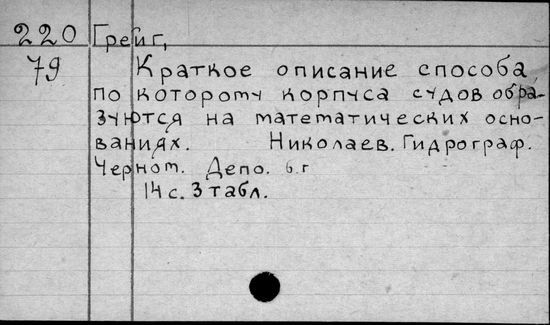 220 Грейг,
79 Краткое описание способа,
по которому корпуса судов обра-
зуются на математических осно-
ваниях. Николаев. Гидрограф.
Черном. Депо. б.г
14 с. 3 табл.